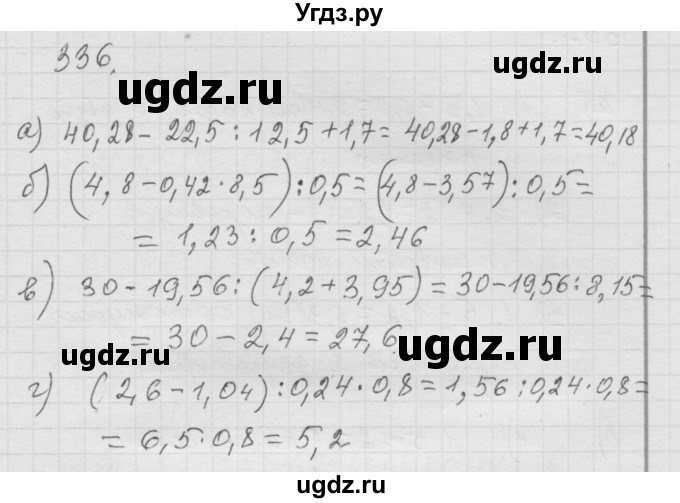 Угдз.ру
336.
ugdz.ru ugdz.ru
а) 40,28 - 22,5 : 12,5 + 1,7 = 40,28 - 1,8 + 1,7 = 40,18
б) (4,8 - 0,42 · 8,5) : 0,5 = (4,8 - 3,57) : 0,5 =
= 1,23 : 0,5 = 2,46
в) 30 - 19,56 : (4,2 + 3,95) = 30 - 19,56 : 8,15 =
= 30 - 2,4 = 27,6.
ugdz.ru ugdz.ru
г) (2,6 - 1,04) : 0,24 · 0,8 = 1,56 : 0,24 · 0,8 =
= 6,5 · 0,8 = 5,2
ugdz.ru